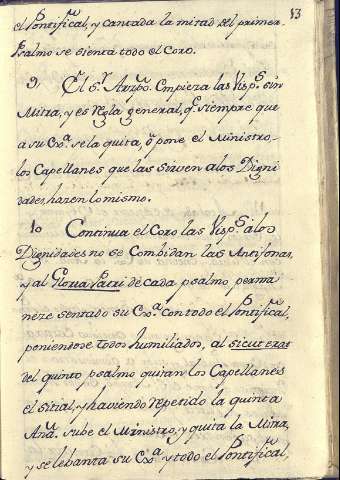 53
el Pontificâl, y cantada la mitad del primer
Psalmo se sienta todo el Coro.
9 El Sr. Arzpo. Empieza las Visps. sin
Mitra, y es regla general, q.e siempre que
a su Exa. se la quita, ò pone el Ministro,
los Capellanes que las sirven a los Digni
dades hacen lo mismo.
10 Continua el Coro las Visps. a los
Dignidades no se Combidan las Antifonas,
y al Gloria Patri de cada psalmo perma
nece sentado su Exa. con todo el Pontificâl,
poniendose todos humillados, al sicut erat
del quinto psalmo quitan los Capellanes
el sitial, y haviendo repetido la quinta
Ana. sube el Ministro, y quita la Mitra,
y se lebanta su Exa. y todo el Pontificâl,